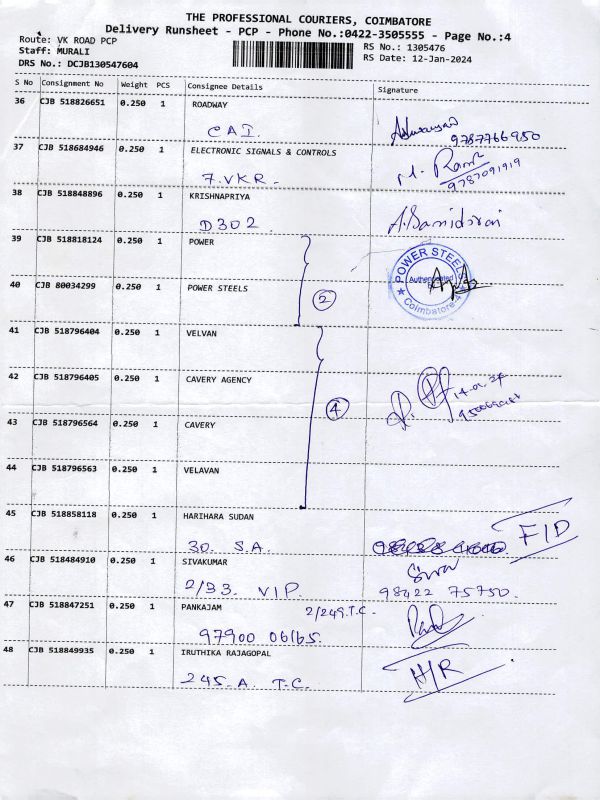 THE PROFESSIONAL COURIERS, COIMBATORE
Delivery Runsheet - PCP - Phone No.:0422-3505555 - Page No.:4
Route: VK ROAD PCP
RS No.: 1305476
Staff: MURALI
RS Date: 12-Jan-2024
DRS No.: DCJB130547604
S No Consignment No Weight PCS Consignee Details Signature
36 CJB 518826651 0.250 1 ROADWAY
CAI.
9787766950
37 CJB 518684946 0.250 1 ELECTRONIC SIGNALS & CONTROLS
7.VKR.
9787091919
38 CJB 518848896 0.250 1 KRISHNAPRIYA
D302
39 CJB 518818124 0.250 1 POWER
POWER STEELS
Authenticated
Coimbatore-4
40 CJB 80034299 0.250 1 POWER STEELS
②
41 CJB 518796404 0.250 1 VELVAN
42 CJB 518796405 0.250 1 CAVERY AGENCY
④
43 CJB 518796564 0.250 1 CAVERY
44 CJB 518796563 0.250 1 VELAVAN
45 CJB 518858118 0.250 1 HARIHARA SUDAN
30. S.A. F/D
46 CJB 518484910 0.250 1 SIVAKUMAR
2/33 VIP. 98422 75750.
47 CJB 518847251 0.250 1 PANKAJAM
2/249.T.C.
97900 06165.
48 CJB 518849935 0.250 1 IRUTHIKA RAJAGOPAL
245. A T.C. H/R